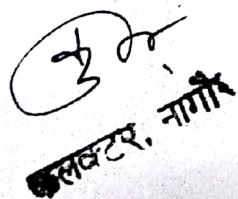 कलक्टर, नागौर